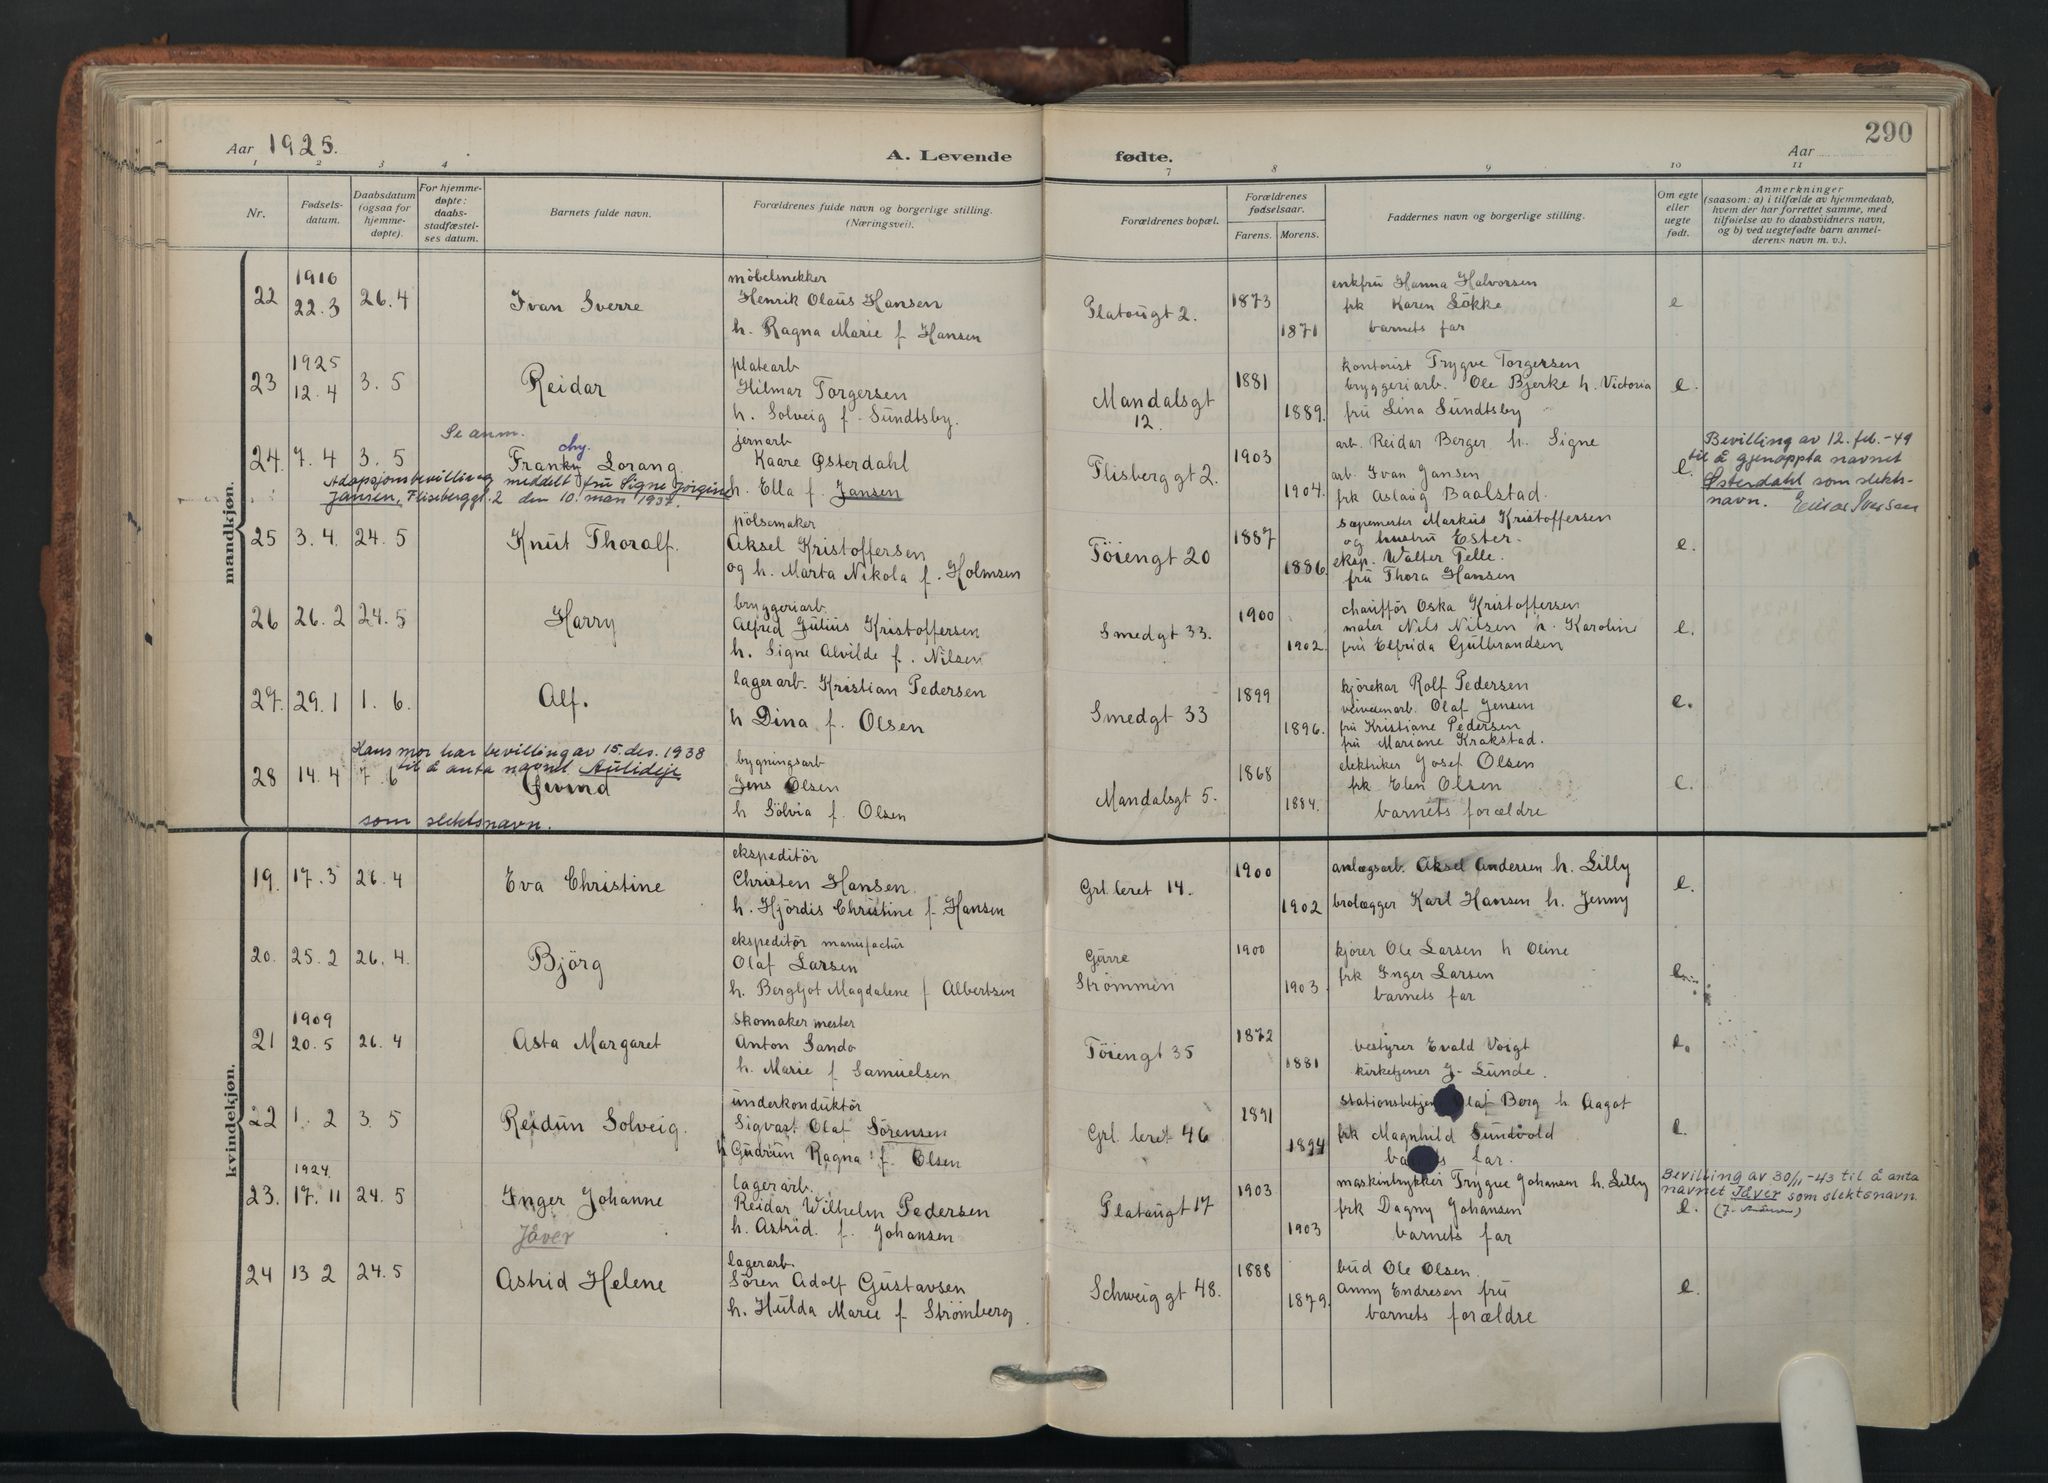 290
Aar 1925.
A. Levende fødte.
Aar
1 2 3 4 7 8 9 10 11
Nr.
Fødsels-
datum.
Daabsdatum
(ogsaa for
hjemme-
døpte).
For hjemme-
døpte:
daabs-
stadfæstel-
ses datum.
Barnets fulde navn.
Forældrenes fulde navn og borgerlige stilling.
(Næringsvei).
Forældrenes bopæl.
Forældrenes
fødselsaar.
Farens. Morens.
Faddernes navn og borgerlige stilling.
Om egte
eller
uegte
født.
Anmerkninger
(saasom: a) i tilfælde av hjemmedaab,
hvem der har forrettet samme, med
tilføielse av to daabsvidners navn,
og b) ved uegtefødte barn anmel-
derens navn m. v.).
mandkjøn.
22
1910
22.3
26.4
Ivan Sverre
möbelsnekker
Henrik Olaus Hansen
h. Ragna Marie f Hansen
Platougt 2.
1873
1871
enkfru Hanna Halvorsen
frk Karen Lökke
barnets far
e
23
1925
12.4
3.5
Reidar
platearb
Hilmar Torgersen
h. Solveig f. Sundtsby.
Mandalsgt
12.
1881
1889.
kontorist Trygve Torgersen
bryggeriarb. Ole Bjerke h. Victoria
fru Lina Sundtsby
e.
Se anm.
24. 7.4 3.5
chy.
Franky Lorang.
Adopsjonsbevilling meddelt fru Signe Jørgine
Jansen, Flisberggt. 2 den 10. mars 1937.
jernarb
Kaare Østerdahl
h. Ella f. Jansen
Flisberggt 2.
1903
1904.
arb. Reidar Berger h. Signe
arb. Ivan Jansen
frk Aslaug Baalstad.
e.
Bevilling av 12. feb. -49
til å gjenoppta navnet
Østerdahl som slekts-
navn. Einar Iversen
25 3.4. 24.5
Knut Thoralf.
pölsemaker
Aksel Kristoffersen
og h. Marta Nikola f. Holmsen
Töiengt 20
1887
1886.
sæpemester Markus Kristoffersen
og hustru Ester.
eksp. Walter Telle.
fru Thora Hansen
e.
26 26.2 24.5
Harry
bryggeriarb.
Alfred Julius Kristoffersen
h. Signe Alvilde f. Nilsen
Smedgt 33.
1900
1902.
chaufför Oska Kristoffersen
maler Nils Nilsen h. Karoline
fru Elfrida Gulbrandsen
e.
27. 29.1 1.6.
Alf.
lagerarb. Kristian Pedersen
h Dina f. Olsen
Smedgt 33
1899
1896.
kjörekar Rolf Pedersen
Olaf Jensen
fru Kristiane Pedersen
fru Mariane Krakstad.
e.
Hans mor har bevilling av 15. des. 1938
til å anta navnet Aulidije
28 14.4 7.6
Øivind
som slektsnavn.
bygningsarb
Jens Olsen
h Sölvia f. Olsen
Mandalsgt 5.
1868
1884.
elektriker Josef Olsen
frk Elen Olsen
barnets forældre
e.
kvindekjøn.
19. 17.3 26.4
Eva Christine
ekspeditör
Christen Hansen.
h. Hjördis Christine f Hansen
Grl. leret 14.
1900
1902
anlægsarb. Aksel Andersen h. Lilly
brolægger Karl Hansen h. Jenny
e.
20. 25.2 26.4.
Björg
ekspeditör manufactur
Olaf Larsen
h. Bergljot Magdalene f Albertsen
Garre
Strømmen
1900
1903.
kjörer Ole Larsen h Oline
frk Inger Larsen
barnets far
e
21
1909
20.5
26.4
Asta Margaret
skomaker mester
Anton Sando
h. Marie f Samuelsen
Töiengt 35
1872
1881
bestyrer Evald Voigt
kirketjener J. Lunde.
e.
22 1.2 3.5
Reidun Solveig.
underkonduktör
Sigvart Olaf Sörensen
h Gudrun Ragna f. Olsen
Grl. leret 46
1891
1894
stationsbetjen Olaf Berg h Aagot
frk Magnhild Sundvold
barnets far.
e.
23.
1924
17.11
24.5
Inger Johanne
Jåver
lagerarb.
Reidar Wilhelm Pedersen
h. Astrid. f. Johansen
Platougt 17
1903
1903
maskintrykker Trygve Johansen h. Lilly
frk Dagny Johansen
barnets far
e.
Bevilling av 30/11-43 til å anta
navnet Jåver som slektsnavn.
24 13 2 24.5
Astrid Helene
lagerarb.
Sören Adolf Gustavsen
h. Hulda Marie f Strömberg
Schweiggt 48.
1888
1879.
bud Ole Olsen.
Anny Endresen fru
barnets forældre
e.